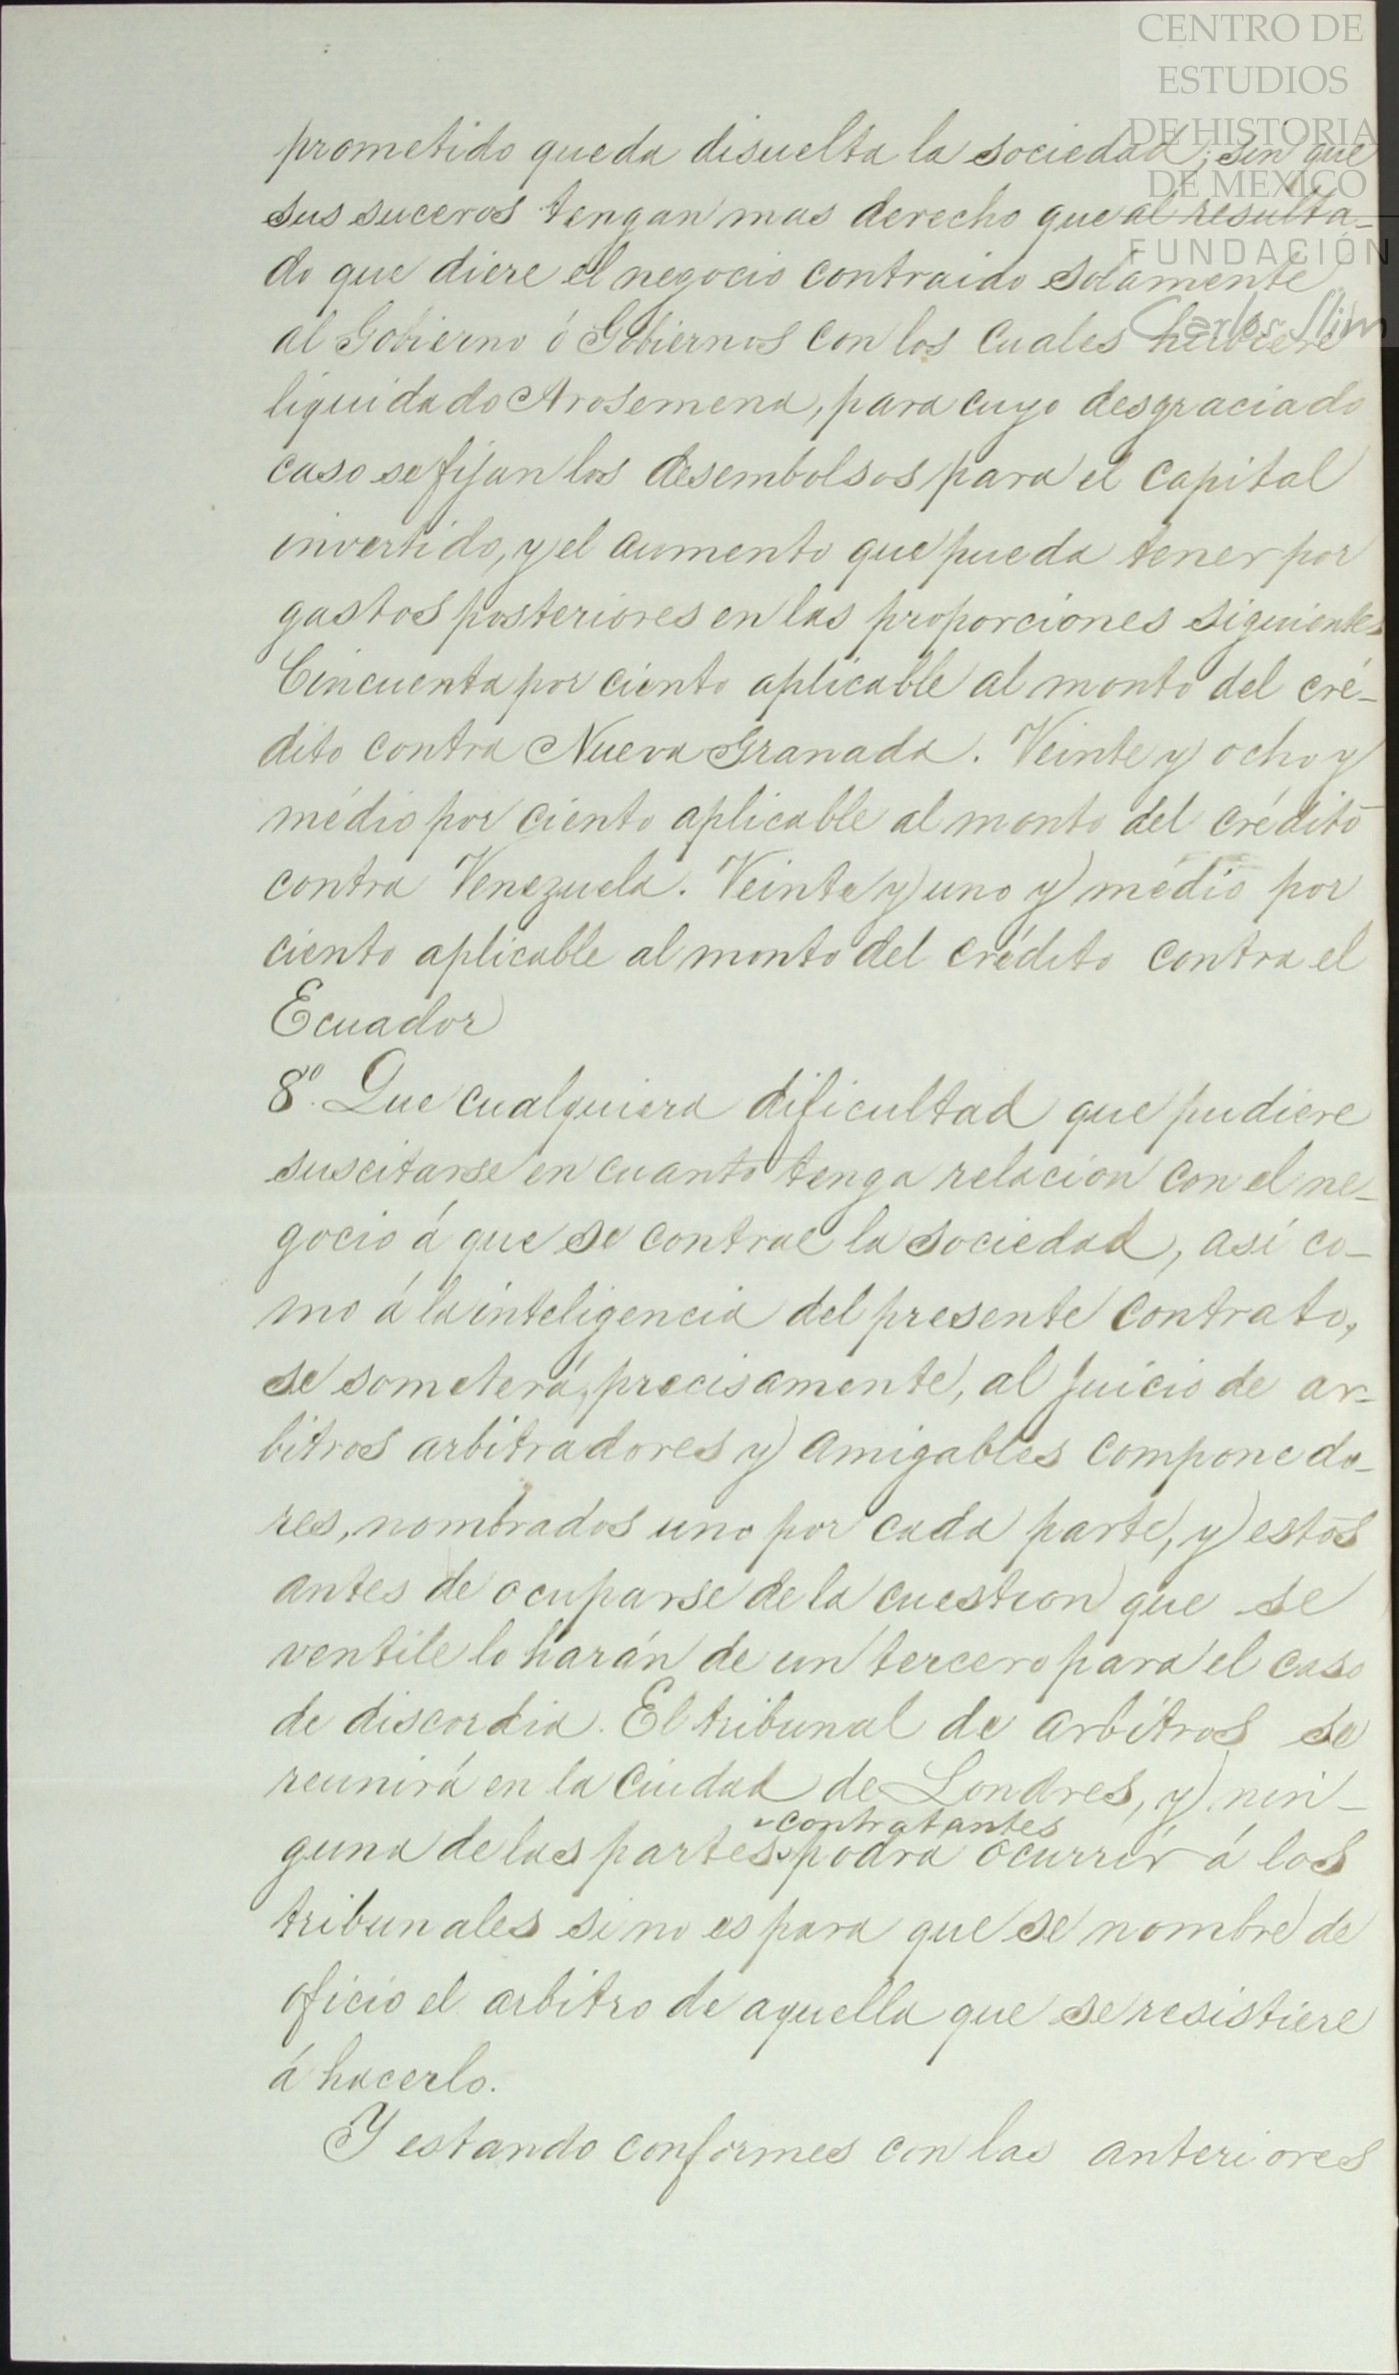 CENTRO DE
ESTUDIOS
DE HISTORIA
DE MEXICO
FUNDACIÓN
Carlos Slim
prometido queda disuelta la sociedad; sin que
sus suceros tengan mas derecho que al resulta-
do que diere el negocio contraido solamente
al Gobierno ó Gobiernos con los cuales hubiere
liquidado Arosemena, para cuyo desgraciado
caso se fijan los desembolsos para el capital
invertido, y el aumento que pueda tener por
gastos posteriores en las proporciones siguientes
Cincuenta por ciento aplicable al monto del cré-
dito contra Nueva Granada. Veinte y ocho y
médio por ciento aplicable al monto del crédito
contra Venezuela. Veinte y uno y médio por
ciento aplicable al monto del crédito contra el
Ecuador
8º. Que cualquiera dificultad que pudiere
suscitarse en cuanto tenga relacion con el ne-
gocio á que se contrae la sociedad, así co-
mo á la inteligencia del presente contrato,
se someterá, precisamente, al juicio de ar-
bitros arbitradores y amigables componedo-
res, nombrados uno por cada parte, y estos
antes de ocuparse de la cuestion que se
ventile lo harán de un tercero para el caso
de discordia. El tribunal de arbitros se
reunirá en la ciudad de Londres, y nin-
contratantes
guna de las partes podra ocurrir á los
tribunales si no es para que se nombre de
oficio el arbitro de aquella que se resistiere
á hacerlo.
Y estando conformes con las anteriores